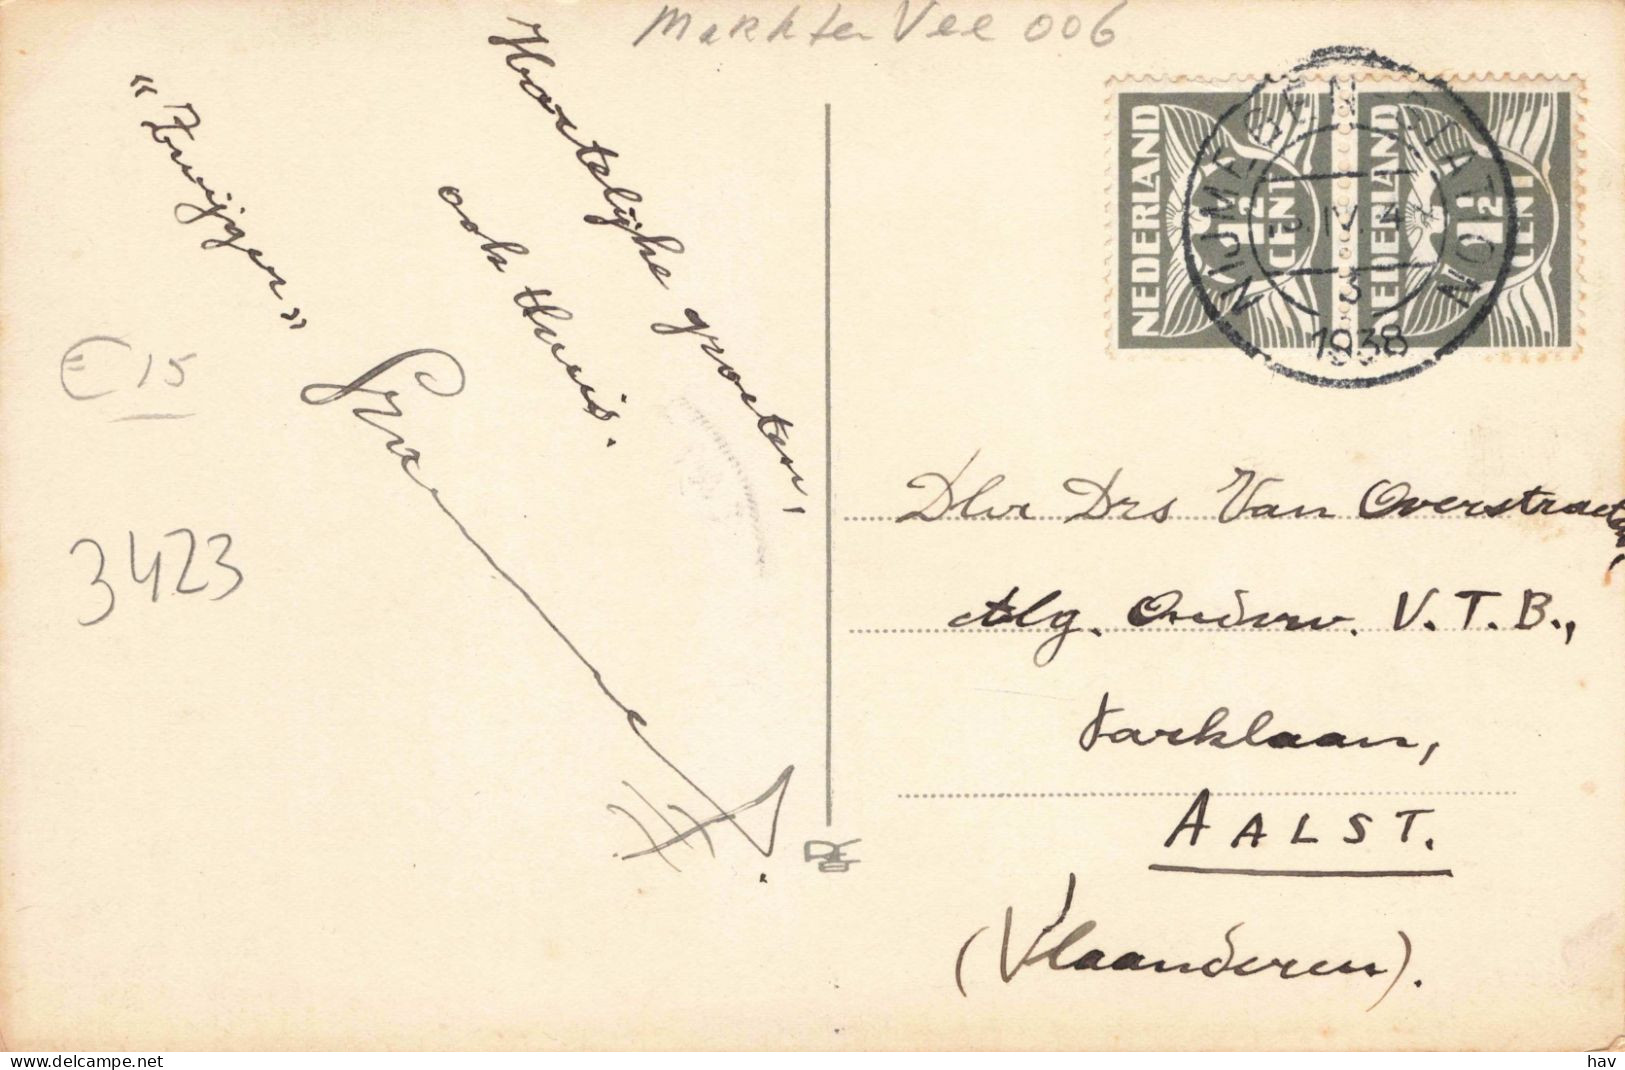 Markten Vee 006
"Zwijger"
Hartelijke groeten,
ook thuis.
€ 15
3423
NEDERLAND
1½
CENT
NEDERLAND
1½
CENT
NIJMEGEN-STATION
IV.34
3
1938
Dhr Drs Van Overstraeten,
Alg. Onderv. V.T.B.,
Parklaan,
AALST.
(Vlaanderen).
delcampe.net
hav